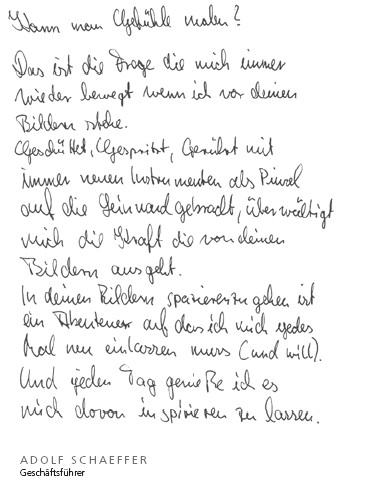 Kann man Gefühle malen?
Das ist die Frage die mich immer
wieder bewegt wenn ich vor deinen
Bildern stehe.
Geschüttet, Gespritzt, Gerührt mit
immer neuen Instrumenten als Pinsel
auf die Leinwand gebracht, überwältigt
mich die Kraft die von deinen
Bildern ausgeht.
In deinen Bildern spazierenzugehen ist
ein Abenteuer auf das ich mich jedes
Mal neu einlassen muss (und will).
Und jeden Tag genieße ich es
mich davon inspirieren zu lassen.
ADOLF SCHAEFFER
Geschäftsführer